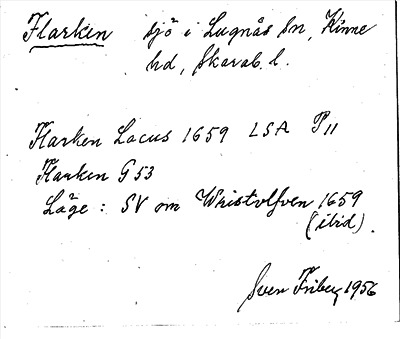 Flarken sjö i Lugnås sn, Kinne
hd, Skarab. l.
Flarken Lacus 1659 LSA P11
Flarken G53
Läge: SV om Wristolfven 1659
(ibid).
Sven Friberg 1956